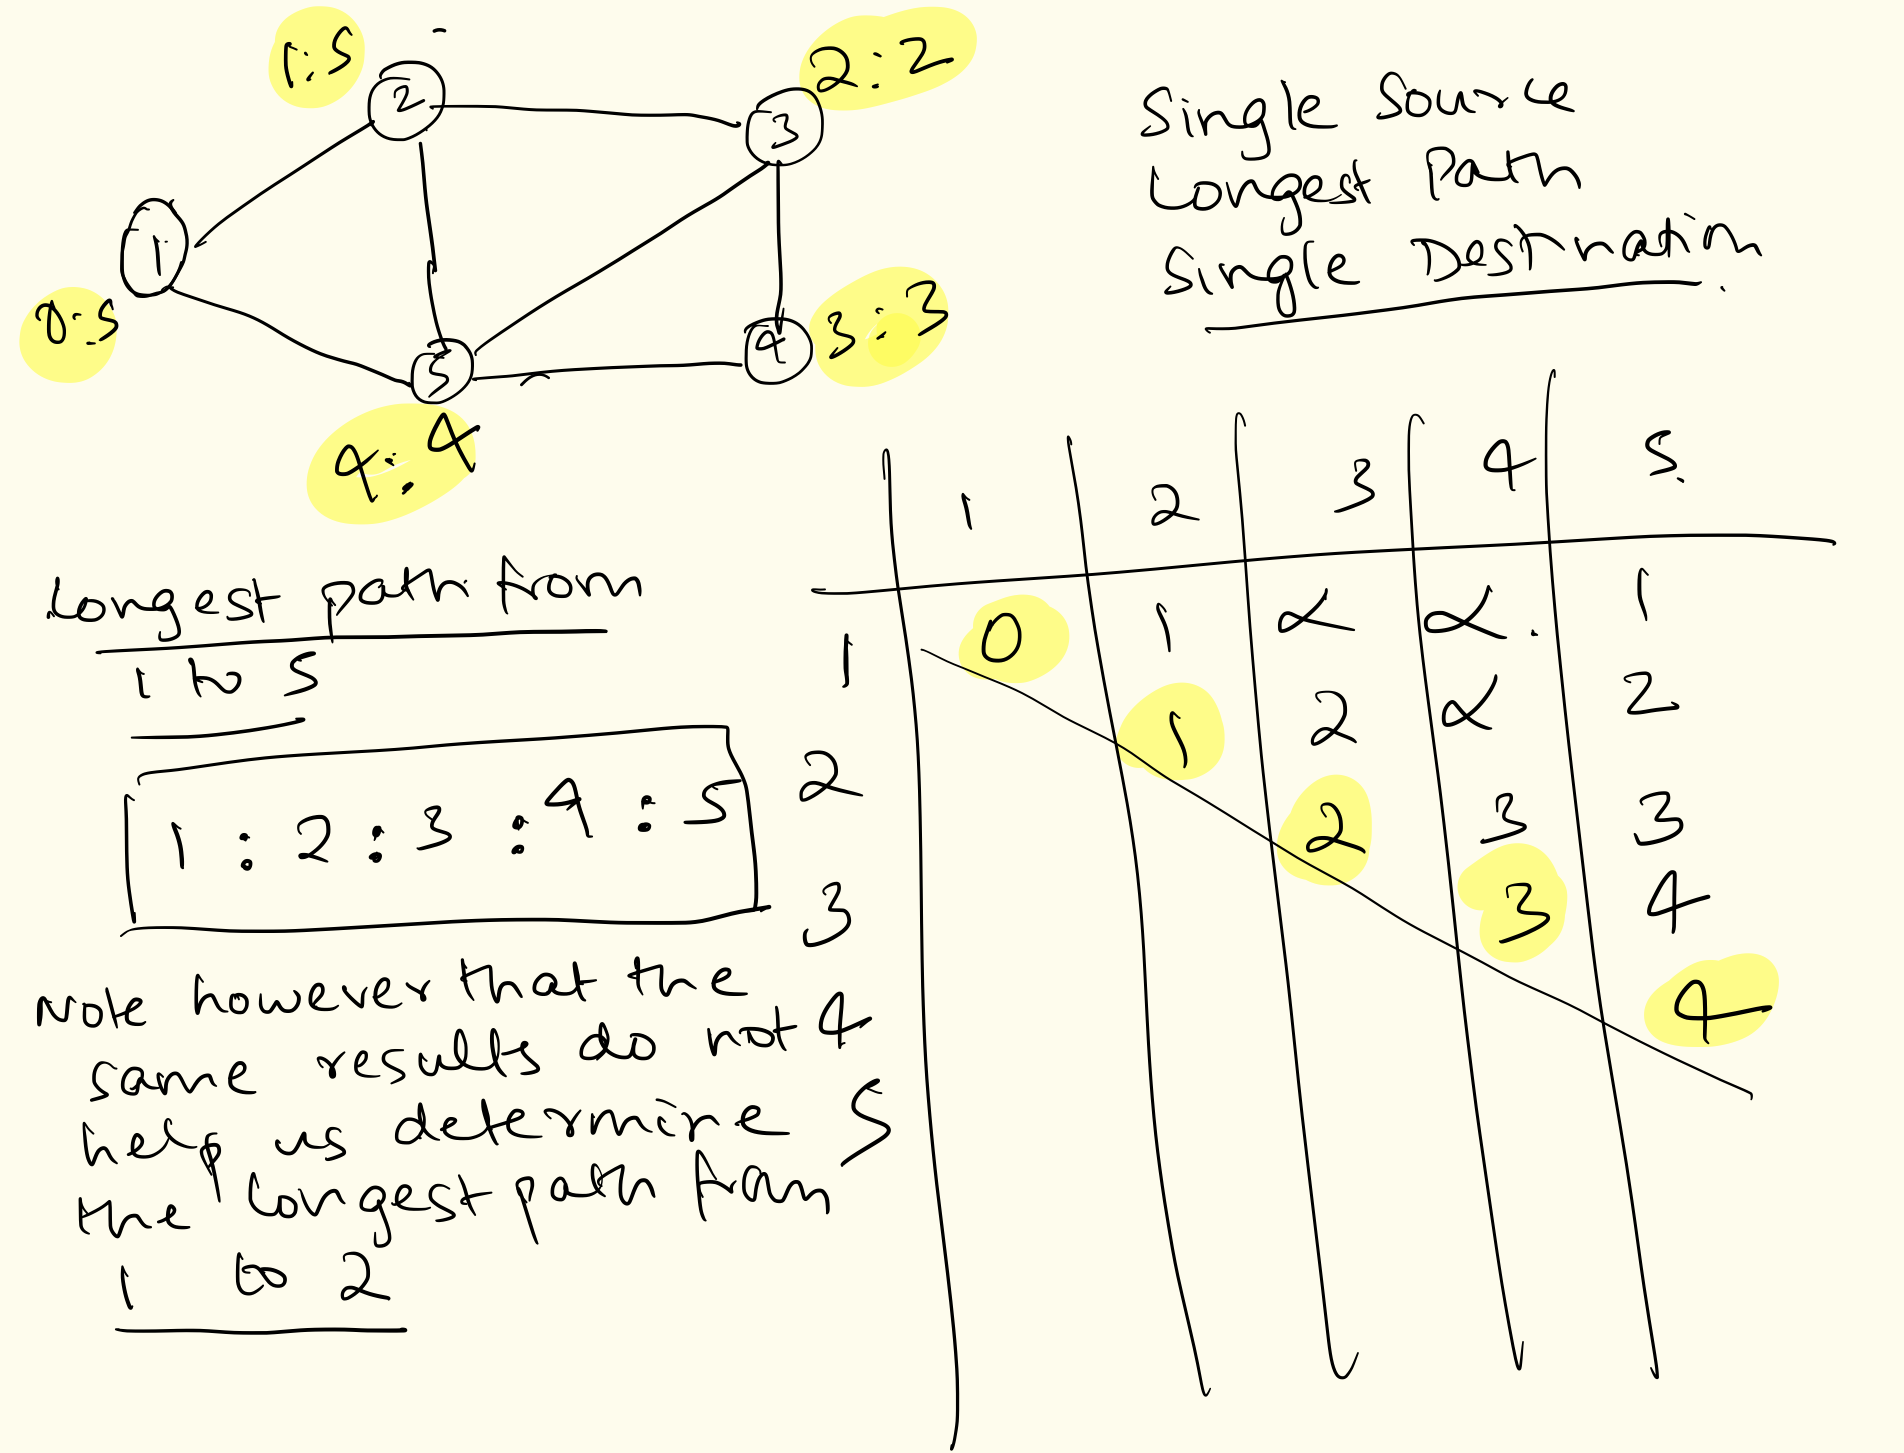 1:5
2:2
2
3
1
0:5
5
4
3:3
4:4
Single Source
Longest Path
Single Destination
Longest path from
1 to 5
1 : 2 : 3 : 4 : 5
Note however that the
same results do not
help us determine
the longest path from
1 to 2
1 2 3 4 5
1 0 1 α α 1
2 1 2 α 2
3 2 3 3
4 3 4
5 4